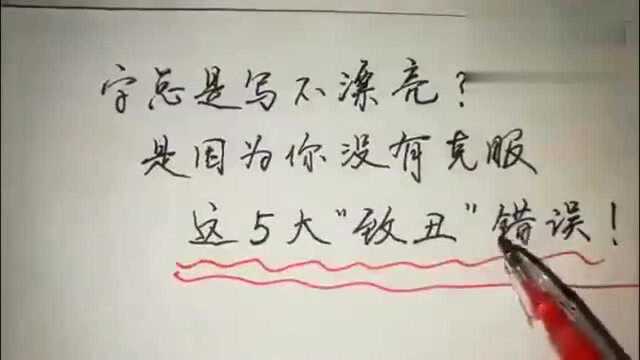 字总是写不漂亮?
是因为你没有克服
这5大"致丑"错误!